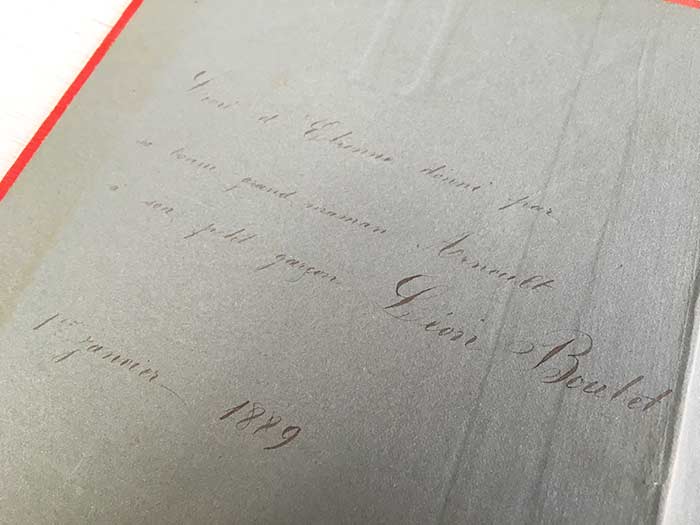 Livre d'Etrenne donné par
sa bonne grand maman Arnoult
à son petit garçon Léon Boulet
1er janvier 1889